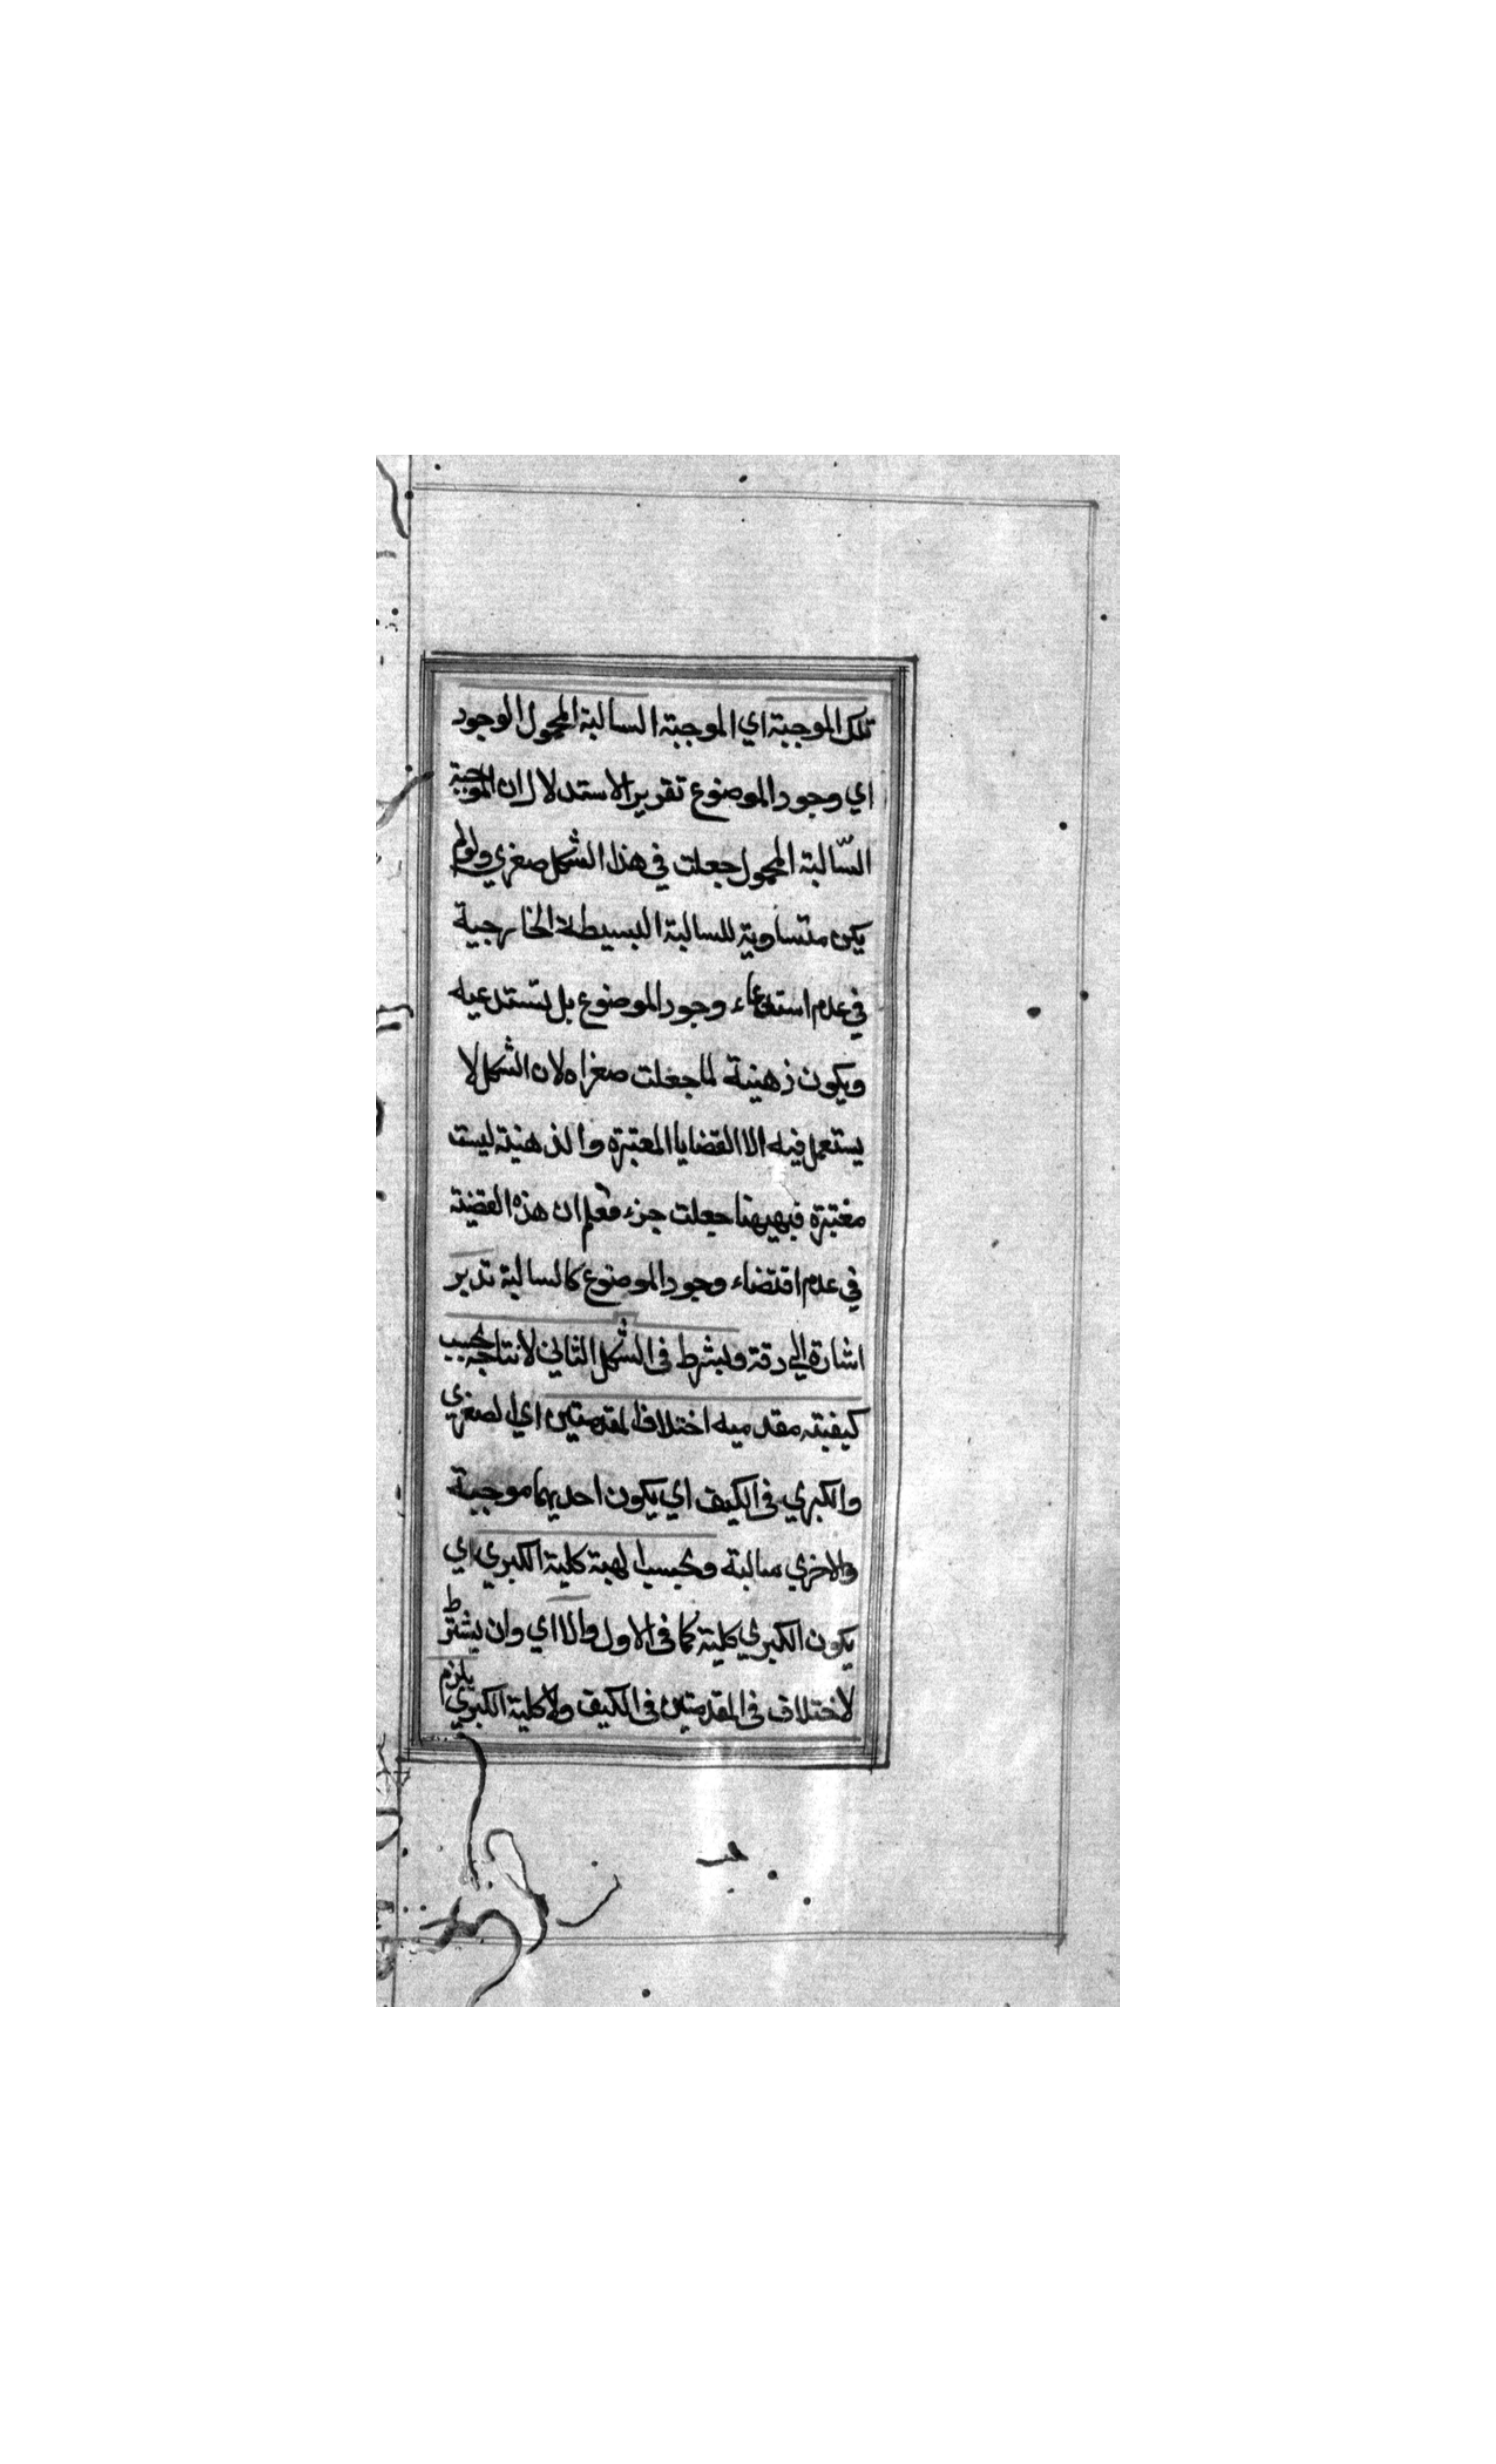 تلك الموجبة اي الموجبة السالبة المحمول الوجود
اي وجود الموضوع تقرير الاستدلال ان الموجبة
السّالبة المحمول جعلت في هذا الشكل صغري ولولم
يكن متساوية للسالبة البسيطة الخارجية
في عدم استدعاء وجود الموضوع بل تستدعيه
ويكون ذهنية لما جعلت صغراه لان الشكل لا
يستعمل فيه الا القضايا المعتبرة والذهنية ليست
معتبرة فبهيهنا جعلت جزء فعلم ان هذه القضية
في عدم اقتضاء وجود الموضوع كالسالبة تدبر
اشارة الي دقة ويشرط فى الشكل الثاني لانتاجه بحسب
كيفيته مقدميه اختلاف المقدمتين اي الصغري
والكبري فى الكيف اي يكون احديهما موجبة
والاخري سالبة وبحسب الهبة كلية الكبري اي
يكون الكبري كلية كما فى الاول والا اي وان يشترط
لاختلاف فى المقدمتين فى الكيف ولا كلية الكبري يلزم